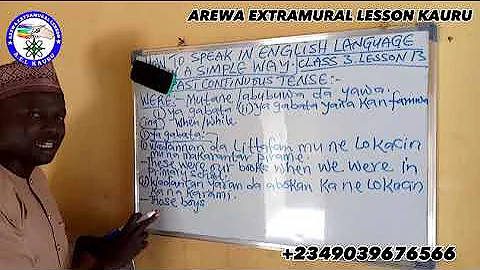 AREWA EXTRAMURAL LESSON KAURU
AREWA EXTRAMURAL LESSON
A.E.L KAURU
TO SPEAK IN ENGLISH LANGUAGE
A SIMPLE WAY. CLASS 3, LESSON 13
PAST CONTINUOUS TENSE:-
WERE:- Mutane/abubuwa da yawa.
(i) ya gabata (ii) ya gabata yana kan faruwa
(ing) when/while.
(i) ya gabata:-
waɗannan da littafan mu ne lokacin
mu na makarantar pirame.
- These were our books when we were in
primary school
waɗancan yaran da abokan ka ne lokacin
ka na karami.
- Those boys
+2349039676566